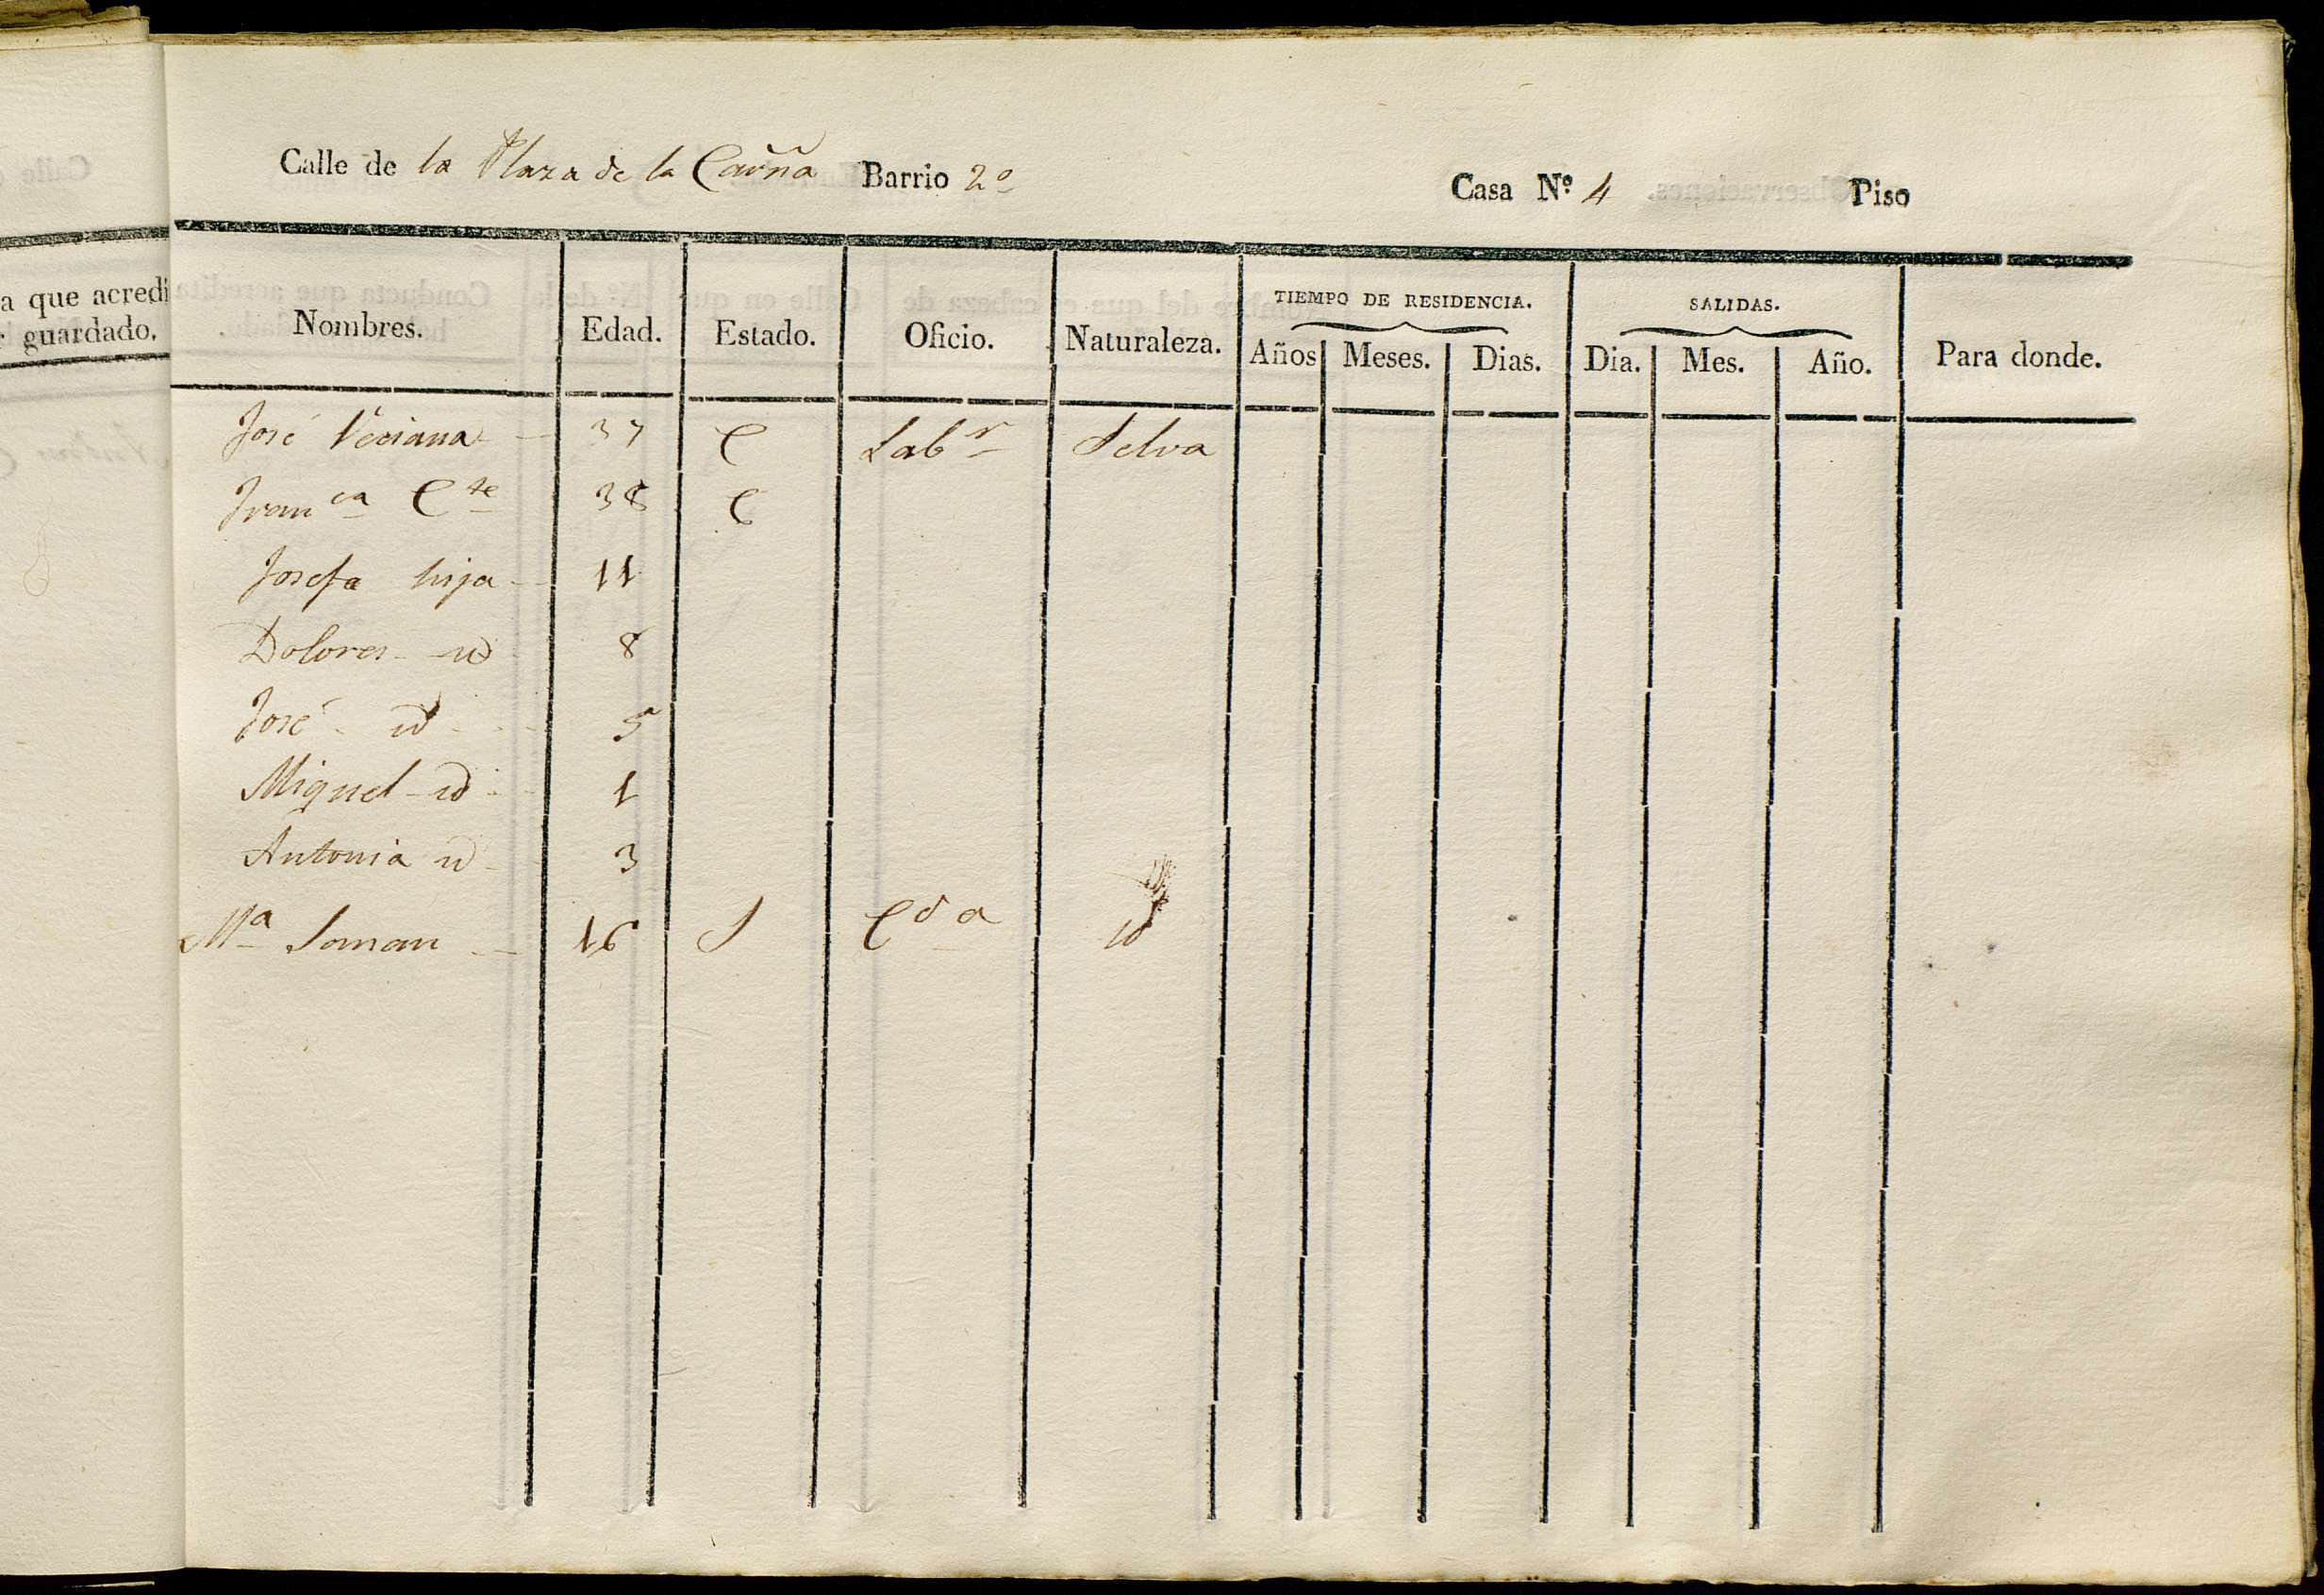 a que acredi
guardado.
Calle de la Plaza de la Barrio 2º Casa Nº 4 Piso
Nombres. Edad. Estado. Oficio. Naturaleza. TIEMPO DE RESIDENCIA. Años Meses. Dias. SALIDAS. Dia. Mes. Año. Para donde.
José Veciana 37 C Labr Selva
Franca Cte 38 C
Josefa hija 11
Dolores id 8
José id 5
Miguel id 1
Antonia id 3
Ma 16 S Cda id